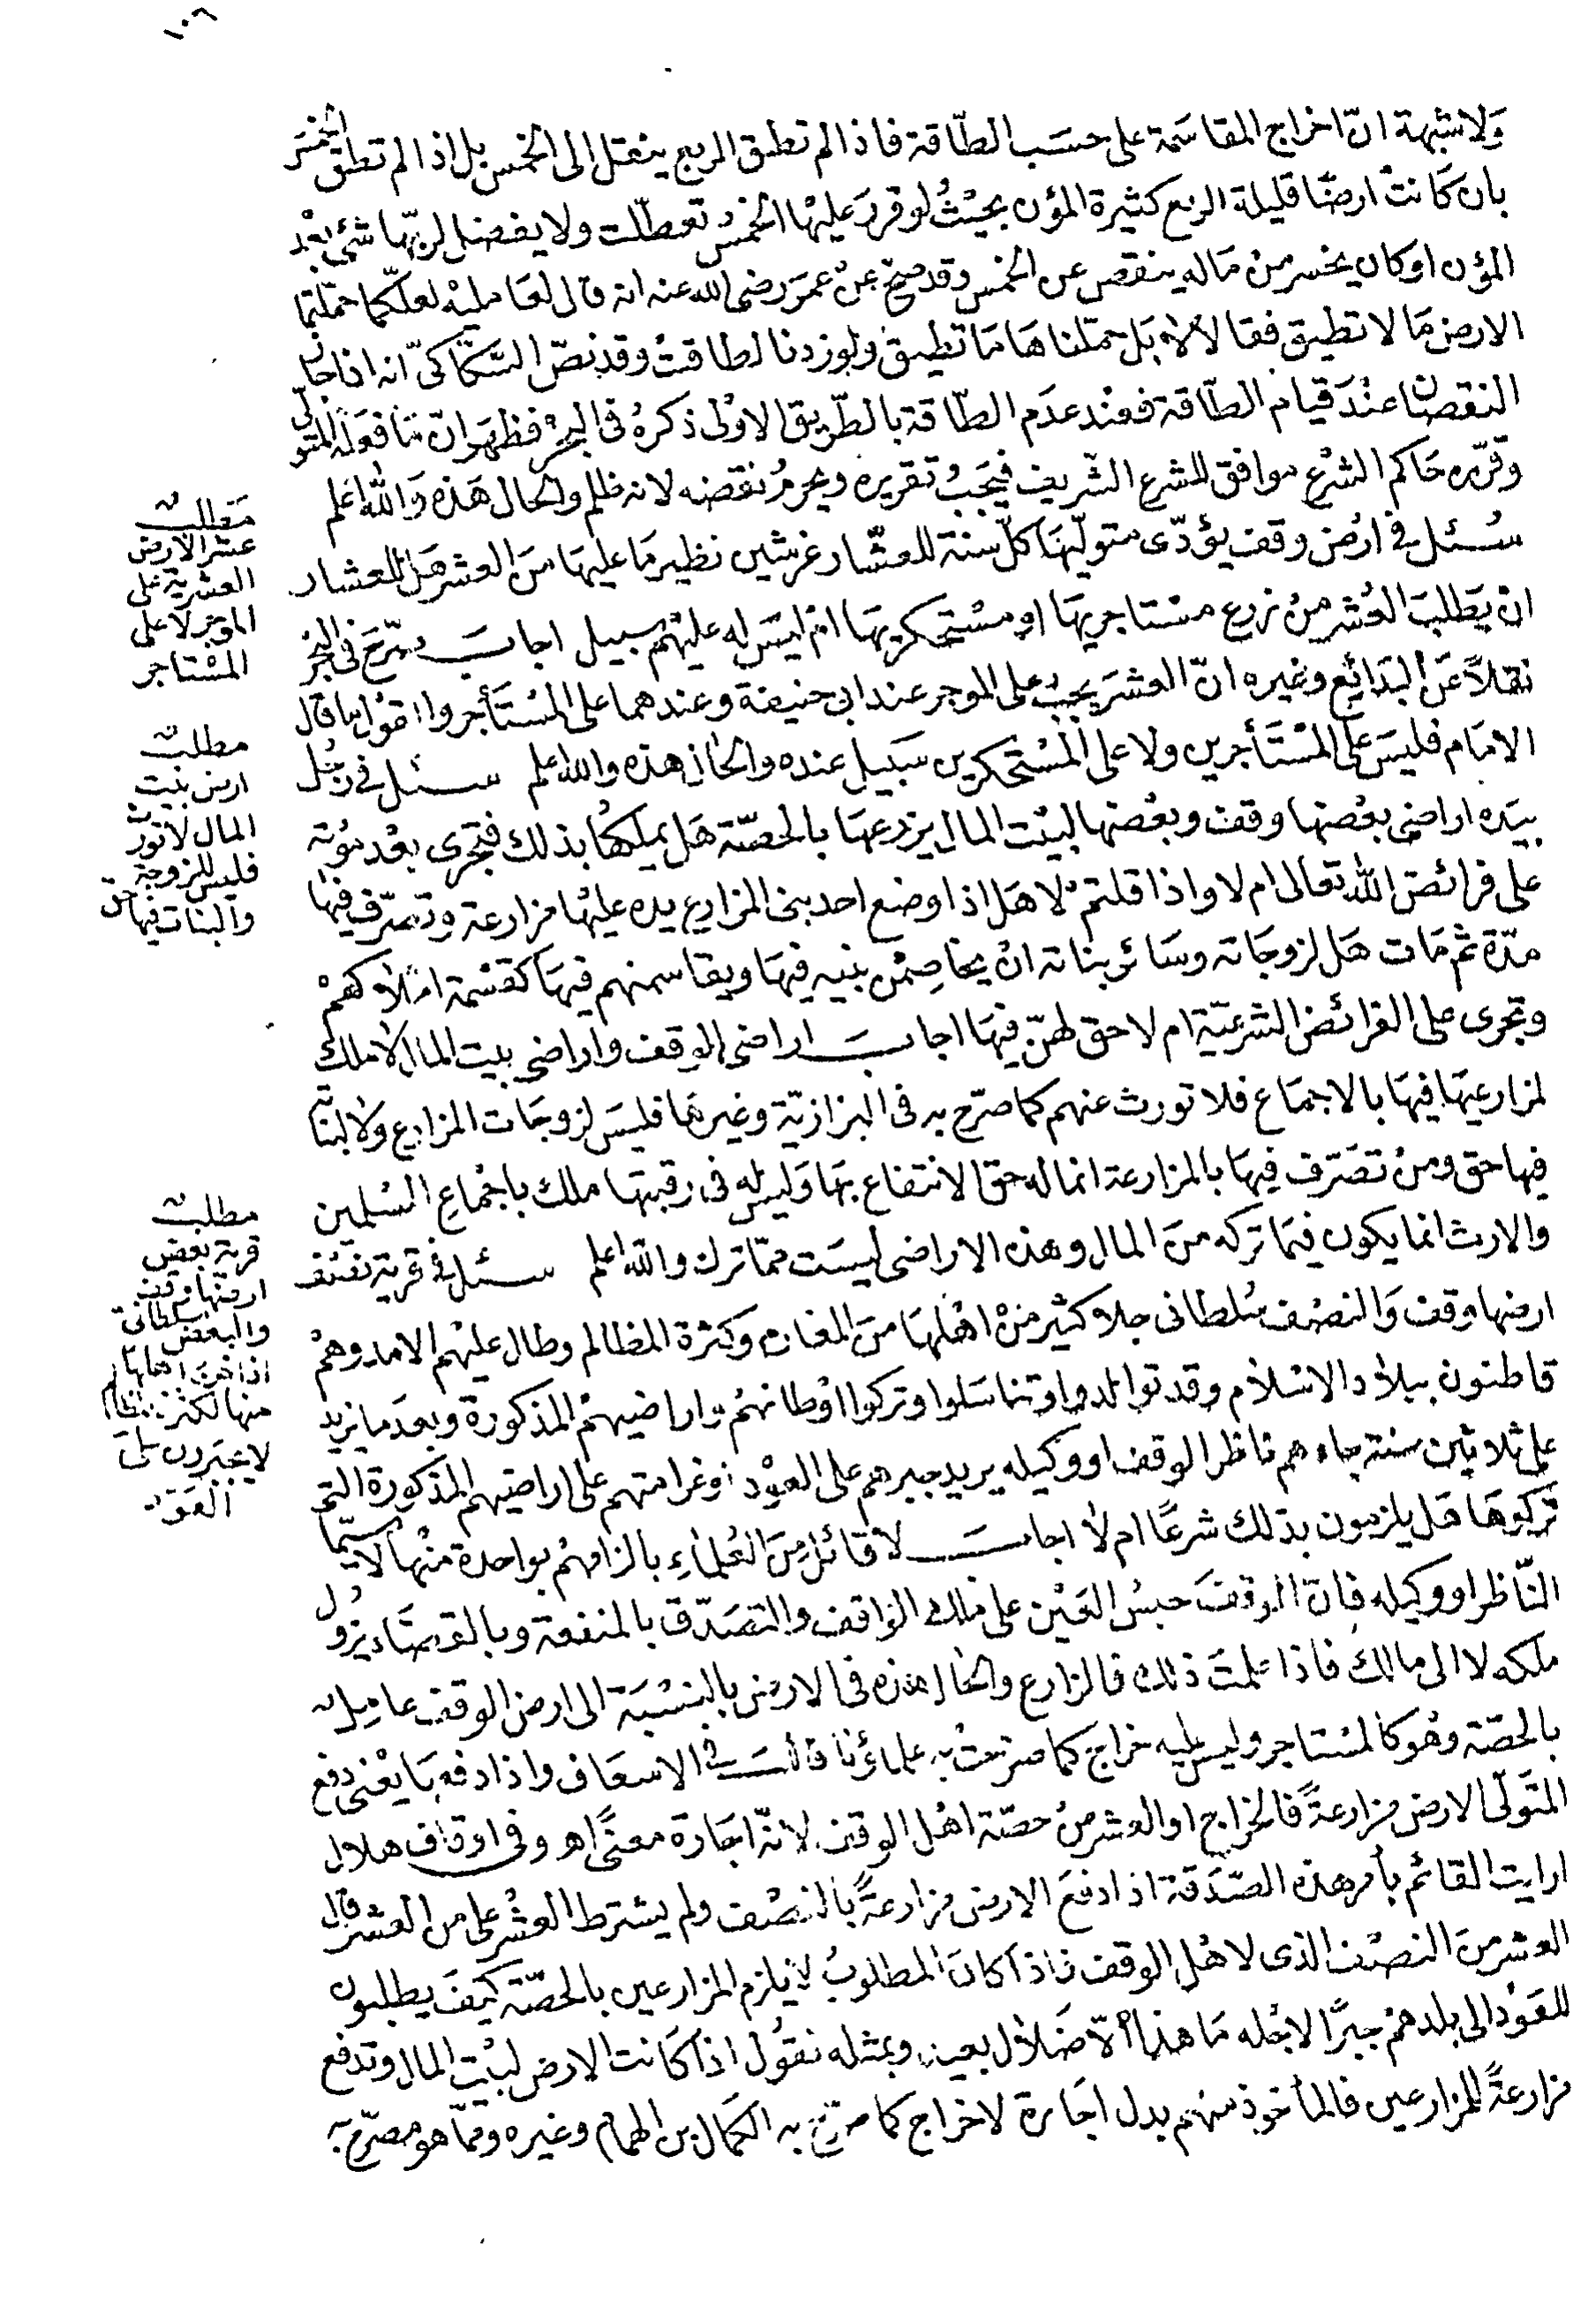 ١٠٦
ولا شبهة ان خراج المقاسمة على حسب الطاقة فاذا لم تطق الربع ينقل الى الخمس بل اذا لم تطق الخمس
بان كانت ارضا قليلة الريع كثيرة المؤن بحيث لو قرر عليها الخمس تعطلت ولا يفضل لربها شئ بعد
المؤن او كان يخسر من ماله ينقص عن الخمس وقد صح عن عمر رضى الله عنه انه قال لعامليه لعلكما حملتما
الارض ما لا تطيق فقالا لا بل حملناها ما تطيق ولو زدنا لطاقت وقد نص السكاكى انه اذا جاز
النقصان عند قيام الطاقة فعند عدم الطاقة بالطريق الاولى ذكره فى البحر فظهر ان ما فعله المتولى
وقرره حاكم الشرع موافق للشرع الشريف فيجب تقريره ويحرم نقضه لانه ظلم والحال هذه والله اعلم
سئل فى ارض وقف يؤدى متوليها كل سنة للعشار غرشين نظير ما عليها من العشر هل للعشار
ان يطلب العشر من زرع مستاجريها او مستحكريها ام ليس له عليهم سبيل اجاب صرح فى البحر
نقلا عن البدائع وغيره ان العشر يجب على الموجر عند ابى حنيفة وعندهما على المستأجر واذا قلنا بما قال
الامام فليس على المستأجرين ولا على المستحكرين سبيل عنده والحال هذه والله اعلم سئل فى رجل
بيده اراضى بعضها وقف وبعضها لبيت المال يزرعها بالحصة هل يملكها بذلك فتجرى بعد موته
على فرائض الله تعالى ام لا واذا قلتم لا هل اذا وضع احد بنى المزارع يده عليها مزارعة وتصرف فيها
مدة ثم مات هل لزوجاته وسائر بناته ان يخاصمن بنيه فيها ويقاسمنهم فيها كقسمة املاكهم
وتجرى على الفرائض الشرعية ام لا حق لهن فيها اجاب اراضى الوقف واراضى بيت المال لا ملك
لمزارعيها فيها بالاجماع فلا تورث عنهم كما صرح به فى البزازية وغيرها فليس لزوجات المزارع ولا لبناته
فيها حق ومن تصرف فيها بالمزارعة انما له حق الانتفاع بها وليس له فى رقبتها ملك باجماع المسلمين
والارث انما يكون فيما تركه من المال وهذه الاراضى ليست مما ترك والله اعلم سئل فى قرية نصف
ارضها وقف والنصف سلطانى جلا كثير من اهلها من المغارم وكثرة المظالم وطال عليهم الامد وهم
قاطنون ببلاد الاسلام وقد توالدوا وتناسلوا وتركوا اوطانهم واراضيهم المذكورة وبعد ما يزيد
على ثلاثين سنة جاءهم ناظر الوقف او وكيله يريد جبرهم على العود او غرامتهم على اراضيهم المذكورة التى
تركوها هل يلزمون بذلك شرعا ام لا اجاب لا قائل من العلماء بالزامهم بواحدة منها لا سيما
الناظر او وكيله فان الوقف حبس العين على ملك الواقف والتصدق بالمنفعة وبالقضاء يزول
ملكه لا الى مالك فاذا علمت ذلك فالزارع والحال هذه فى الارض بالنسبة الى ارض الوقف عامل
بالحصة وهو كالمستاجر وليس عليه خراج كما صرحت به علماؤنا قال فى الاسعاف واذا دفعها يعنى دفع
المتولى الارض مزارعة فالخراج او العشر من حصة اهل الوقف لانه اجارة معنى اه وفى اوقاف هلال
ارايت القائم بأمر هذه الصدقة اذا دفع الارض مزارعة بالنصف ولم يشترط العشر على من العشر قال
العشر من النصف الذى لاهل الوقف فاذا كان المطلوب لا يلزم المزارعين بالحصة كيف يطلبون
للعود الى بلدهم جبرا لاجله ما هذا الا ضلال بعيد وبمثله نقول اذا كانت الارض لبيت المال وتدفع
مزارعة للمزارعين فالمأخوذ منهم بدل اجارة لا خراج كما صرح به الكمال بن الهمام وغيره ومما هو مصرح به
مطلب
عشر الارض
العشرية على
الموجر لا على
المستاجر
مطلب
ارض بيت
المال لا تورث
فليس للزوجة
والبنات فيها حق
مطلب
قرية بعض
ارضها وقف
والبعض سلطانى
اذا خرج اهلها
منها لكثرة المظالم
لا يجبرون على
العود